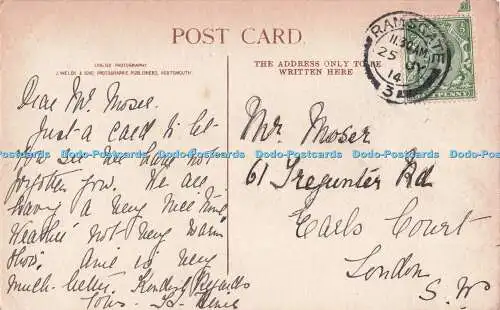 POST CARD.
ENGLISH PHOTOGRAPHY
J. WELCH & SONS, PHOTOGRAPHIC PUBLISHERS, PORTSMOUTH
THE ADDRESS ONLY TO BE
WRITTEN HERE
RAMSGATE
11.30AM
25
14
3
PENNY
Dear Mr. Moser.
Just a card to let
you see we have not
forgotten you. We are
having a very nice time,
Weather not very warm
tho'. is very
much better. Kindest Regards
Mr Moser
61 Tregunter Rd
Earls Court
London
S. W.
Postcards Old-Postcards Old-Postcards Old-Postcards Old-Postcards Old-Postcards